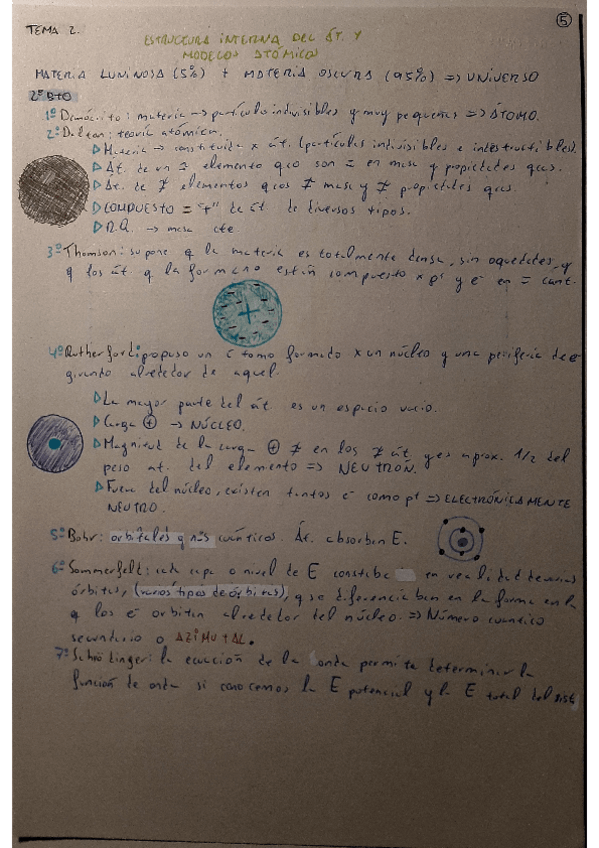 5
TEMA 2.
ESTRUCTURA INTERNA DEL ÁT. Y
MODELOS ATÓMICOS
MATERIA LUMINOSA (5%) + MATERIA OSCURA (95%) => UNIVERSO
2º BTO
1º Demócrito: materia → partículas indivisibles y muy pequeñas => ÁTOMO.
2º Dalton: teoría atómica.
▷ Materia → constituida x át. (partículas indivisibles e indestructibles).
▷ Át. de un = elemento qco son = en masa y propiedades qcas.
▷ Át. de ≠ elementos qcos ≠ masa y ≠ propiedades qcas.
▷ COMPUESTO = "+" de át. de diversos tipos.
▷ R.Q. → masa cte.
3º Thomson: supone q la materia es totalmente densa, sin oquedades, y
q los át. q la forman están compuesto x p+ y e- en = cant.
4º Rutherford: propuso un átomo formado x un núcleo y una periferia de e-
girando alrededor de aquel.
▷ La mayor parte del át. es un espacio vacío.
▷ Carga ⊕ → NÚCLEO.
▷ Magnitud de la carga ⊕ ≠ en los ≠ át. y es aprox. 1/2 del
peso at. del elemento => NEUTRÓN.
▷ Fuera del núcleo, existen tantos e- como p+ => ELECTRÓNICAMENTE
NEUTRO.
5º Bohr: orbitales y nos cuánticos. Át. absorben E.
6º Sommerfeld: cada capa o nivel de E constaba en realidad de varias
órbitas, (varios tipos de órbitas), q se diferenciaban en la forma en la
q los e- orbitan alrededor del núcleo. => Número cuántico
secundario o AZIMUTAL.
7º Schrödinger: la ecuación de la onda permite determinar la
función de onda si conocemos la E potencial y la E total del sist